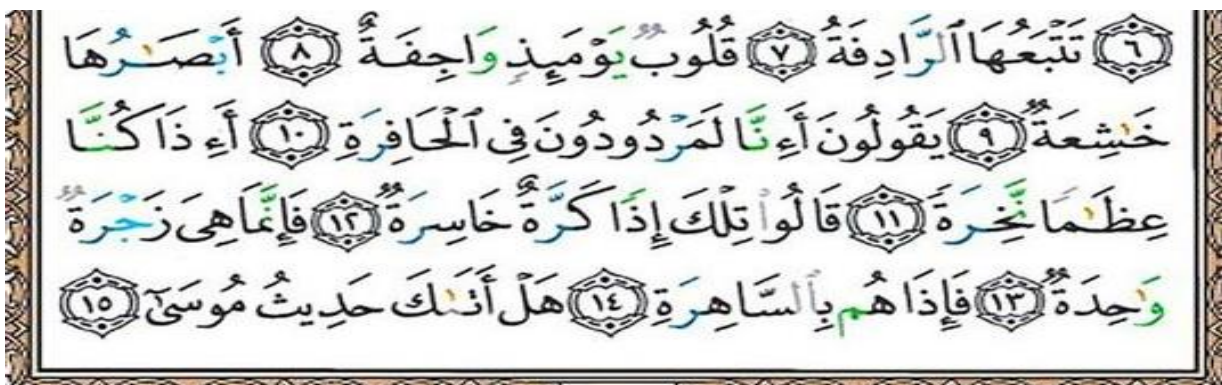 ۝٦ تَتْبَعُهَا ٱلرَّادِفَةُ ۝٧ قُلُوبٌ يَوْمَئِذٍ وَاجِفَةٌ ۝٨ أَبْصَـٰرُهَا
خَـٰشِعَةٌ ۝٩ يَقُولُونَ أَءِنَّا لَمَرْدُودُونَ فِى ٱلْحَافِرَةِ ۝١٠ أَءِذَا كُنَّا
عِظَـٰمًا نَّخِرَةً ۝١١ قَالُوا۟ تِلْكَ إِذًا كَرَّةٌ خَاسِرَةٌ ۝١٢ فَإِنَّمَا هِىَ زَجْرَةٌ
وَٰحِدَةٌ ۝١٣ فَإِذَا هُم بِٱلسَّاهِرَةِ ۝١٤ هَلْ أَتَىٰكَ حَدِيثُ مُوسَىٰٓ ۝١٥